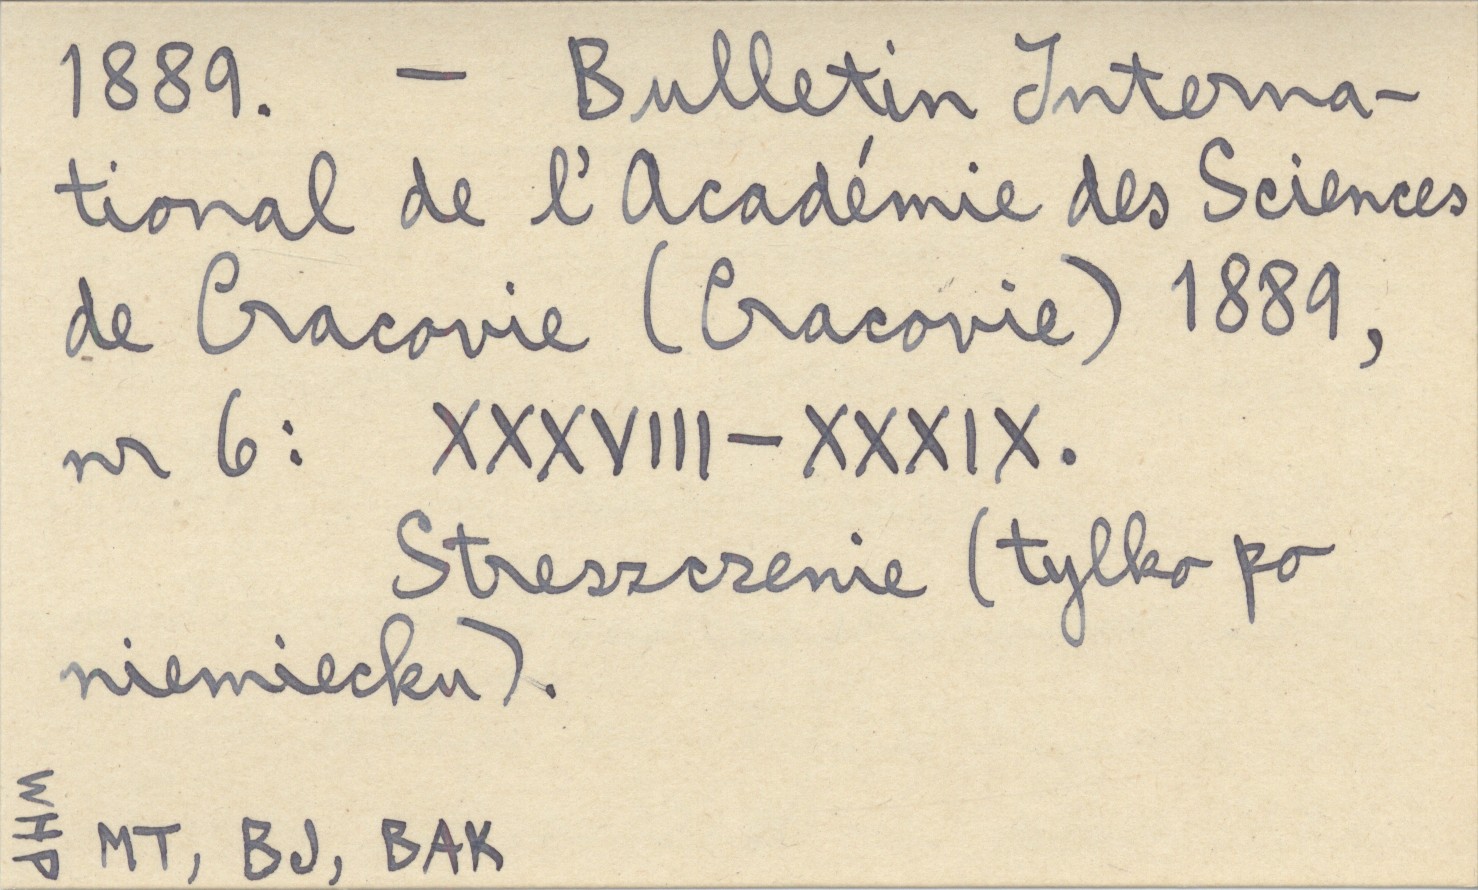 1889. — Bulletin Interna-
tional de l'Académie des Sciences
de Cracovie (Cracovie) 1889,
nr 6: XXXVIII — XXXIX.
Streszczenie (tylko po
niemiecku).
WHP
MT, BJ, BAK